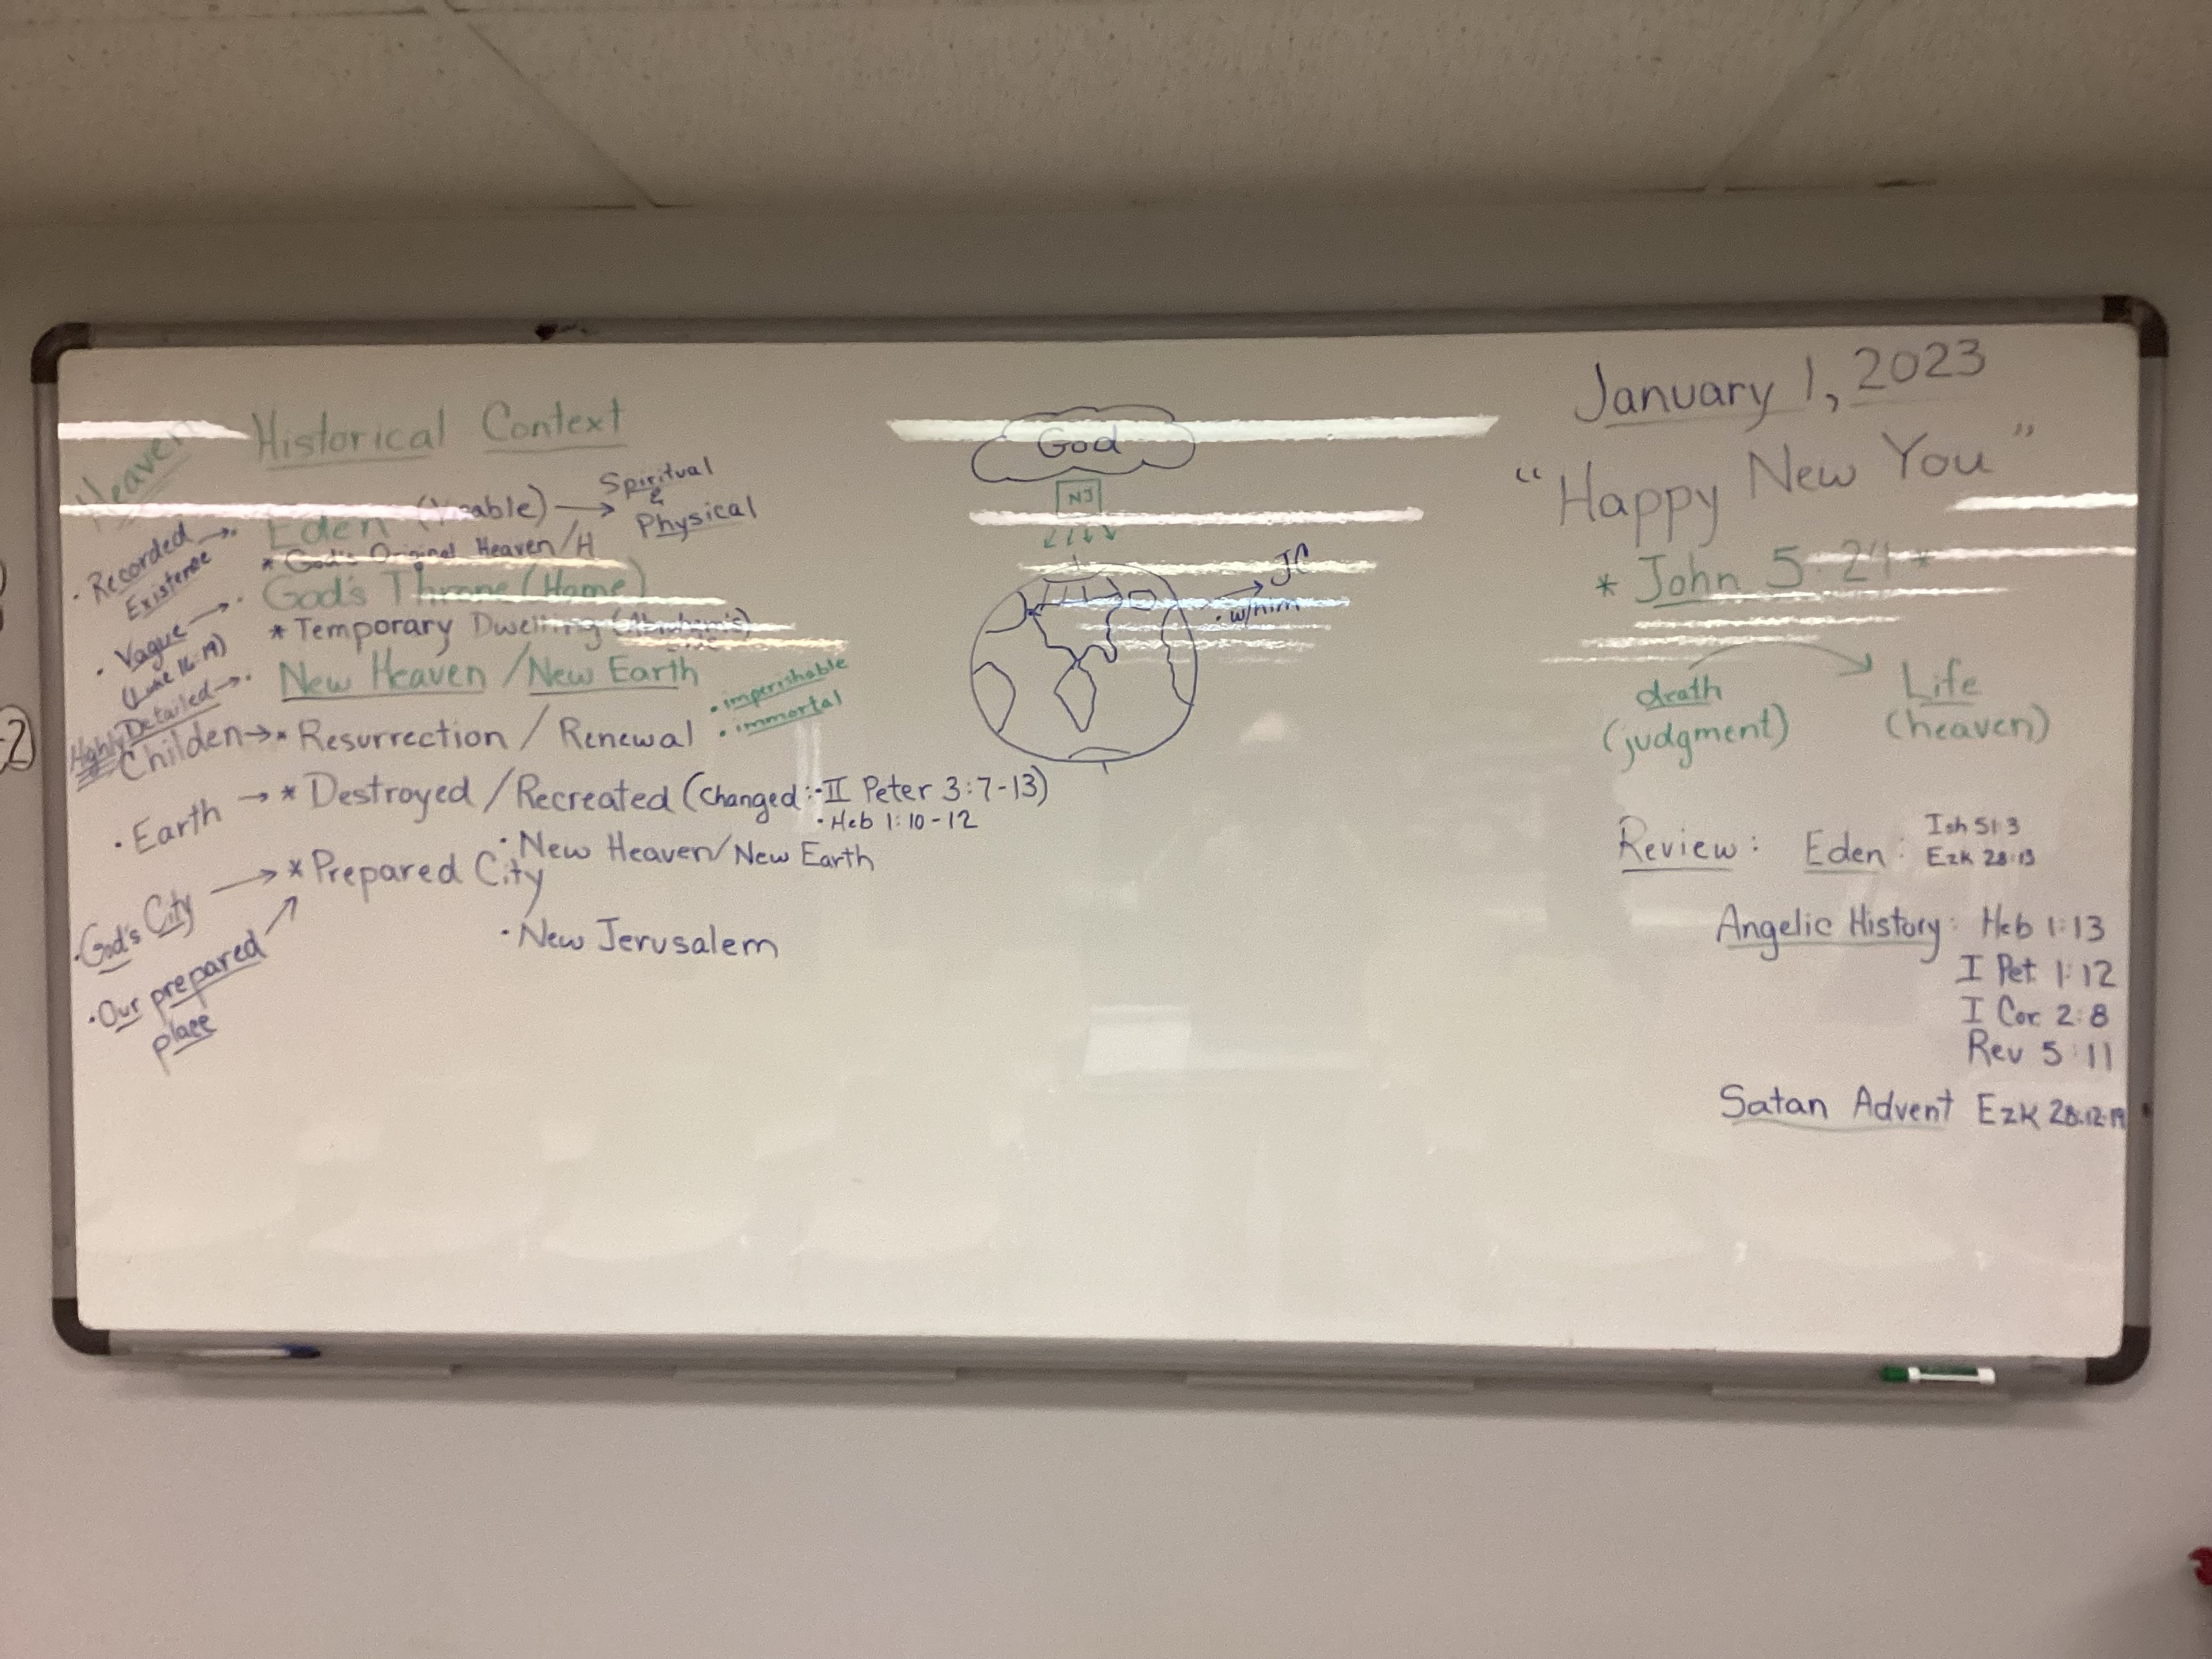 Heaven
Historical Context
Eden → Spiritual
&
Physical
• Recorded → •
Existence
* God's Original Heaven/H
God's Throne (Home)
• Vague → •
(Luke 16:19)
* Temporary Dwelling (Abraham's)
Highly Detailed → •
New Heaven / New Earth
• imperishable
• immortal
Childen → * Resurrection / Renewal
• Earth → * Destroyed / Recreated (changed: • II Peter 3:7-13)
• Heb 1:10-12
• New Heaven/New Earth
• God's City → * Prepared City
• Our prepared
place
• New Jerusalem
God
NJ
→ JC
• w/him
January 1, 2023
"Happy New You"
* John 5:24 *
death → Life
(judgment) (heaven)
Review: Eden: Ish 51:3
Ezk 28:13
Angelic History: Heb 1:13
I Pet 1:12
I Cor 2:8
Rev 5:11
Satan Advent Ezk 28:12-19
2